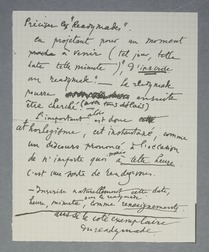 Préciser les "Readymades".
en projetant pour un moment
proche à venir (tel jour, telle
date telle minute), "d'inscrire
un readymade". — Le readymade
pourra ensuite
être cherché (avec tous délais)
L'important alors est donc
cet horlogisme, cet instantané, comme
un discours prononcé à l'occasion
de n'importe quoi mais à telle heure
c'est une sorte de rendezvous.
— Inscrire naturellement cette date,
heure, minute, sur le readymade, comme renseignements
aussi le côté exemplaire
du readymade.